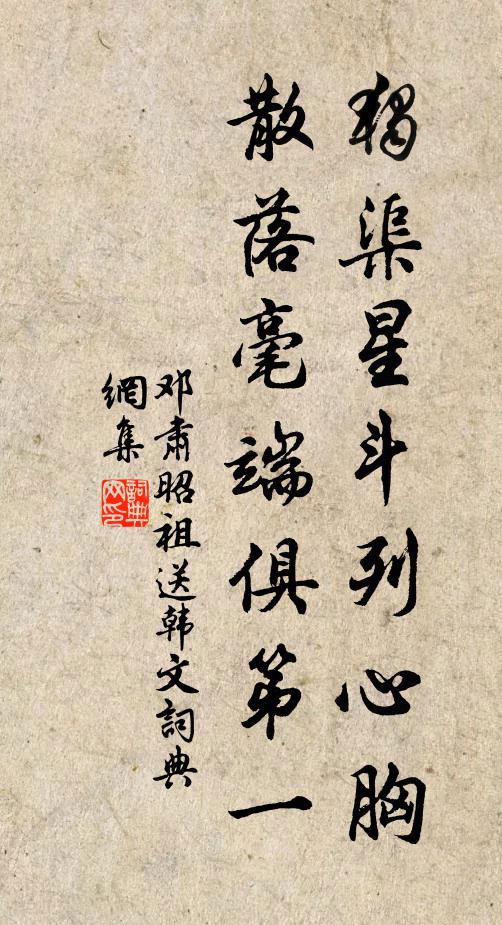 獨渠星斗列心胸
散落毫端俱第一
邓肅昭祖送韩文詞典
網集
詞典
网印